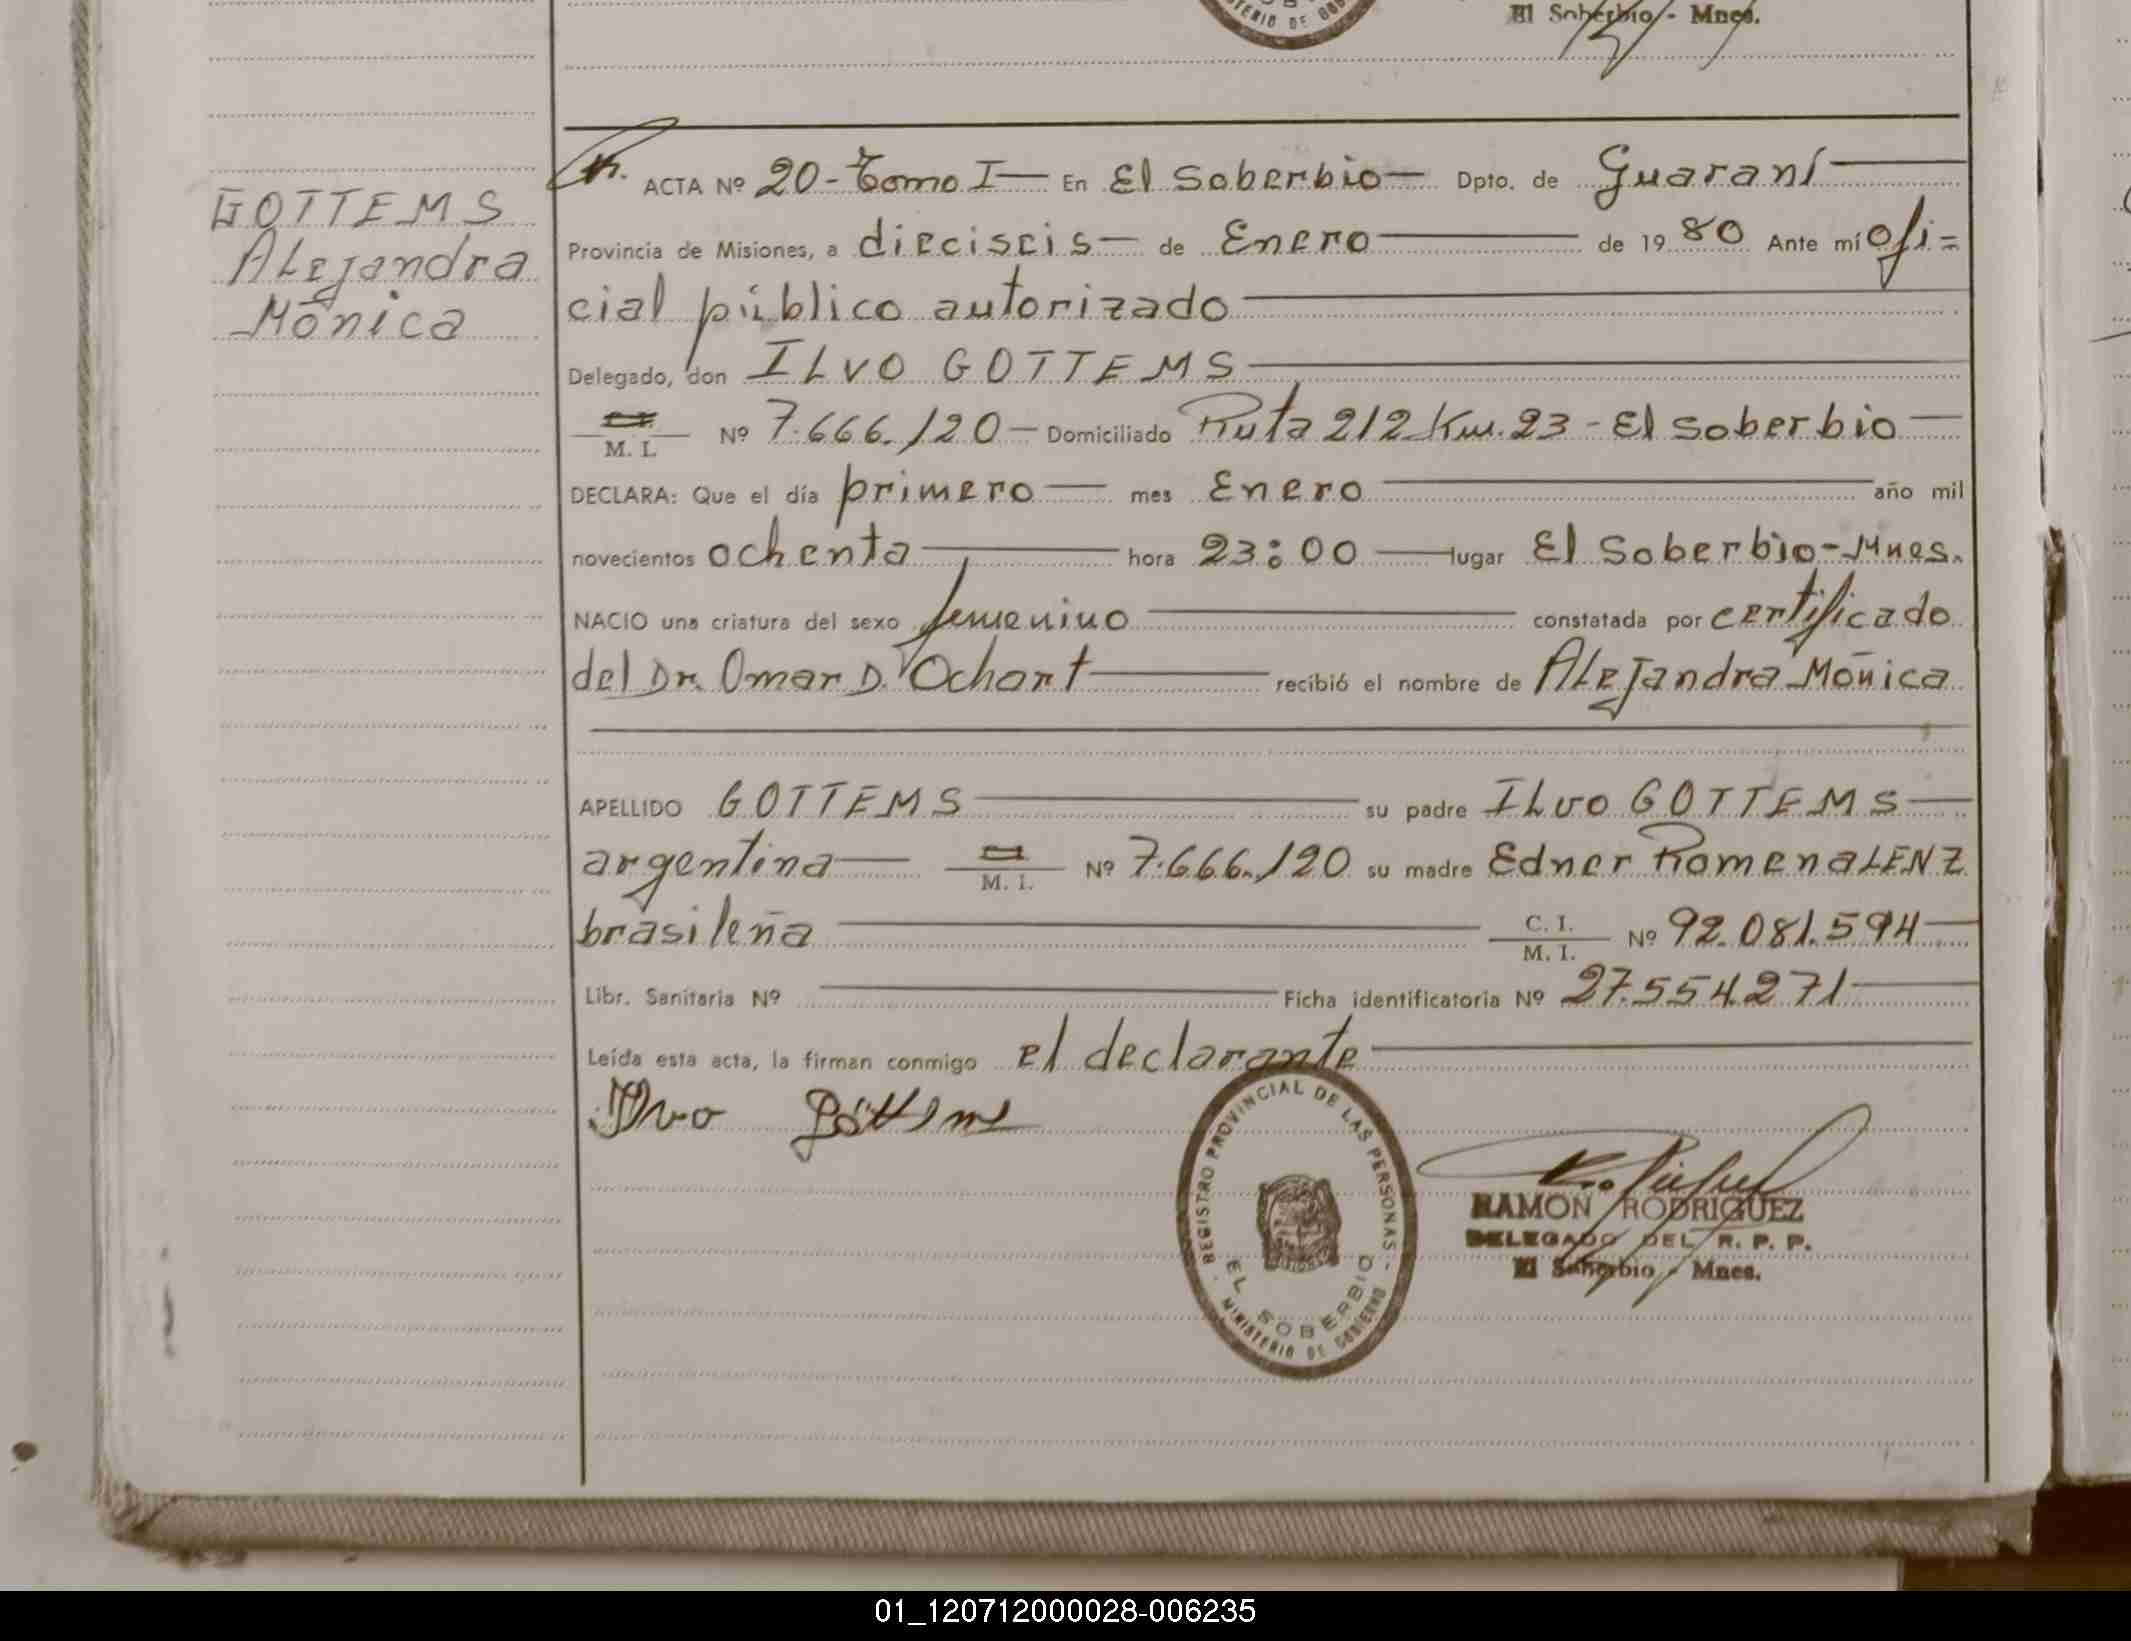 MINISTERIO DE GOBIERNO
El Soberbio - Mnes.
GOTTEMS
Alejandra
Mónica
ACTA Nº 20 - Tomo I — En El Soberbio — Dpto. de Guaraní
Provincia de Misiones, a dieciseis — de Enero — de 1980 Ante mí ofi=
cial público autorizado
Delegado, don ILVO GOTTEMS
M. I. Nº 7.666.120 — Domiciliado Ruta 212 Km. 23 - El Soberbio
DECLARA: Que el día primero — mes Enero — año mil
novecientos ochenta — hora 23:00 — lugar El Soberbio - Mnes.
NACIO una criatura del sexo femenino — constatada por certificado
del Dr. Omar D. Ochort — recibió el nombre de Alejandra Mónica
APELLIDO GOTTEMS — su padre ILVO GOTTEMS
argentina — M. I. Nº 7.666.120 su madre Edner Romena LENZ
brasileña — C. I. M. I. Nº 92.081.594
Libr. Sanitaria Nº — Ficha identificatoria Nº 27.554.271
Leída esta acta, la firman conmigo el declarante
Ilvo Gottems
REGISTRO PROVINCIAL DE LAS PERSONAS
EL SOBERBIO
MINISTERIO DE GOBIERNO
RAMON RODRIGUEZ
DELEGADO DEL R. P. P.
El Soberbio - Mnes.
01_120712000028-006235